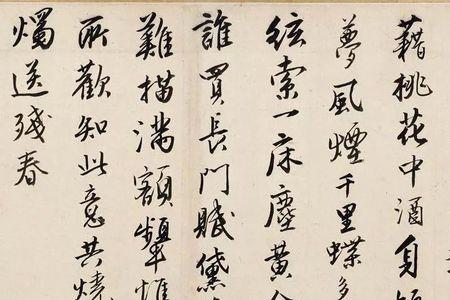 藉桃花中酒自
夢風煙千里蝶多
絃索一床塵黃
誰買長門賦黛
難描滿額顰惟
所歡知此意共燒
燭送殘春